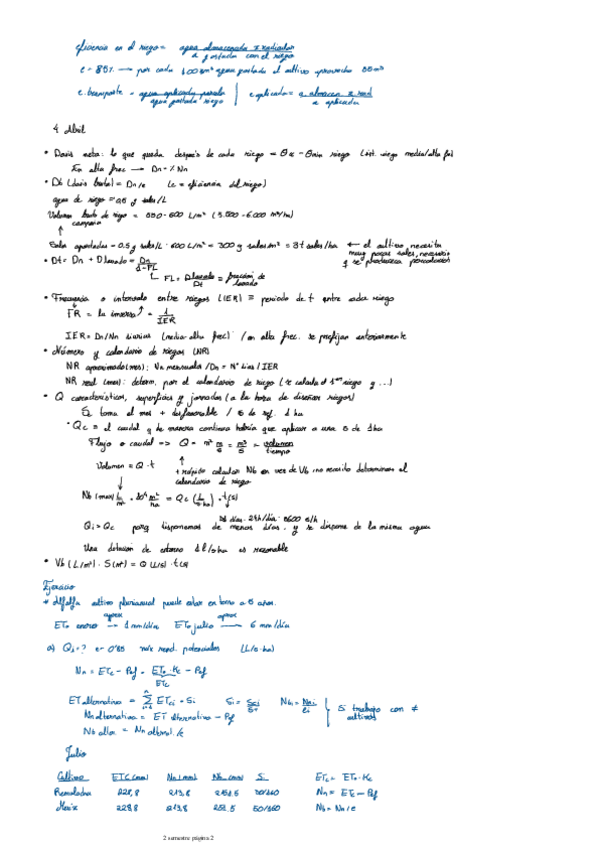 eficiencia en el riego = agua almacenada z radicular
a gastada con el riego
e = 85% → por cada 100 m³ agua gastada el cultivo aprovecha 85 m³
e. transporte = agua aplicada parcela | e aplicada = a. almacen z rad
agua gastada riego | a aplicada
4 Abril
• Dosis neta: lo que queda después de cada riego = θcc - θmin riego (est. riego media/alta fq)
En alta frec → Dn = % Nn
• Db (dosis bruta) = Dn/e (e = eficiencia del riego)
agua de riego = 0,5 g sales/L
Volumen bruto de riego = 550-600 L/m² (5.500-6.000 m³/ha)
campaña
Sales aportadas = 0.5 g sales/L · 600 L/m² = 300 g sales/m² = 3 t sales/ha ← el cultivo necesita
muy pocas sales, necesario
q se produzca percolación
• Dt = Dn + D lavado = Dn
1-FL
FL = D lavado = fracción de
Dt lavado
• Frecuencia o intervalo entre riegos (IER) = periodo de t entre cada riego
FR = la inversa = 1
IER
IER = Dn/Nn diarias (media-alta frec) / en alta frec. se prefijan anteriormente
• Número y calendario de riegos (NR)
NR aproximado (mes): Nn mensuales / Dn = Nº días / IER
NR real (mes): determ. por el calendario de riego (se calcula el 1er riego y ...)
• Q característicos, superficies y jornadas (a la hora de diseñar riegos)
Se toma el mes + desfavorable / S de ref. 1 ha
• Qc = el caudal q de manera continua habría que aplicar a una S de 1 ha
Flujo o caudal => Q = m² m = m³ = volumen
s s tiempo
Volumen = Q · t
+ rápido calcular Nb en vez de Vb, no necesito determinar el
calendario de riego
Nb (mes) L · 10⁴ m² = Qc (L ) · t(s)
m² ha s·ha
días · 24h/día · 3600 s/h
Qi > Qc porq disponemos de menos días, y se dispone de la misma agua
Una dotación de entorno 1 L/s ha es razonable
• Vb (L/m²) · S (m²) = Q (L/s) · t (s)
Ejercicio
* Alfalfa cultivo plurianual puede estar en torno a 5 años.
aprox aprox
ETo enero → 1 mm/día ETo julio → 6 mm/día
a) Qc = ? e = 0'85 máx rend. potenciales (L/s·ha)
Nn = ETc - Pef = ETo · Kc - Pef
ETc
ET alternativa = Σ ETci · Si Si = Sci Nbi = Nni Si trabajo con ≠
St ei cultivos
Nn alternativa = ET alternativa - Pef
Nb alter = Nn alternat./e
Julio
Cultivo ETC (mm) Nn (mm) Nb (mm) Si ETc = ETo · Kc
Remolacha 228,8 213,8 50/160 Nn = ETc - Pef
Maíz 228,8 213,8 50/160 Nb = Nn/e
2 semestre página 2